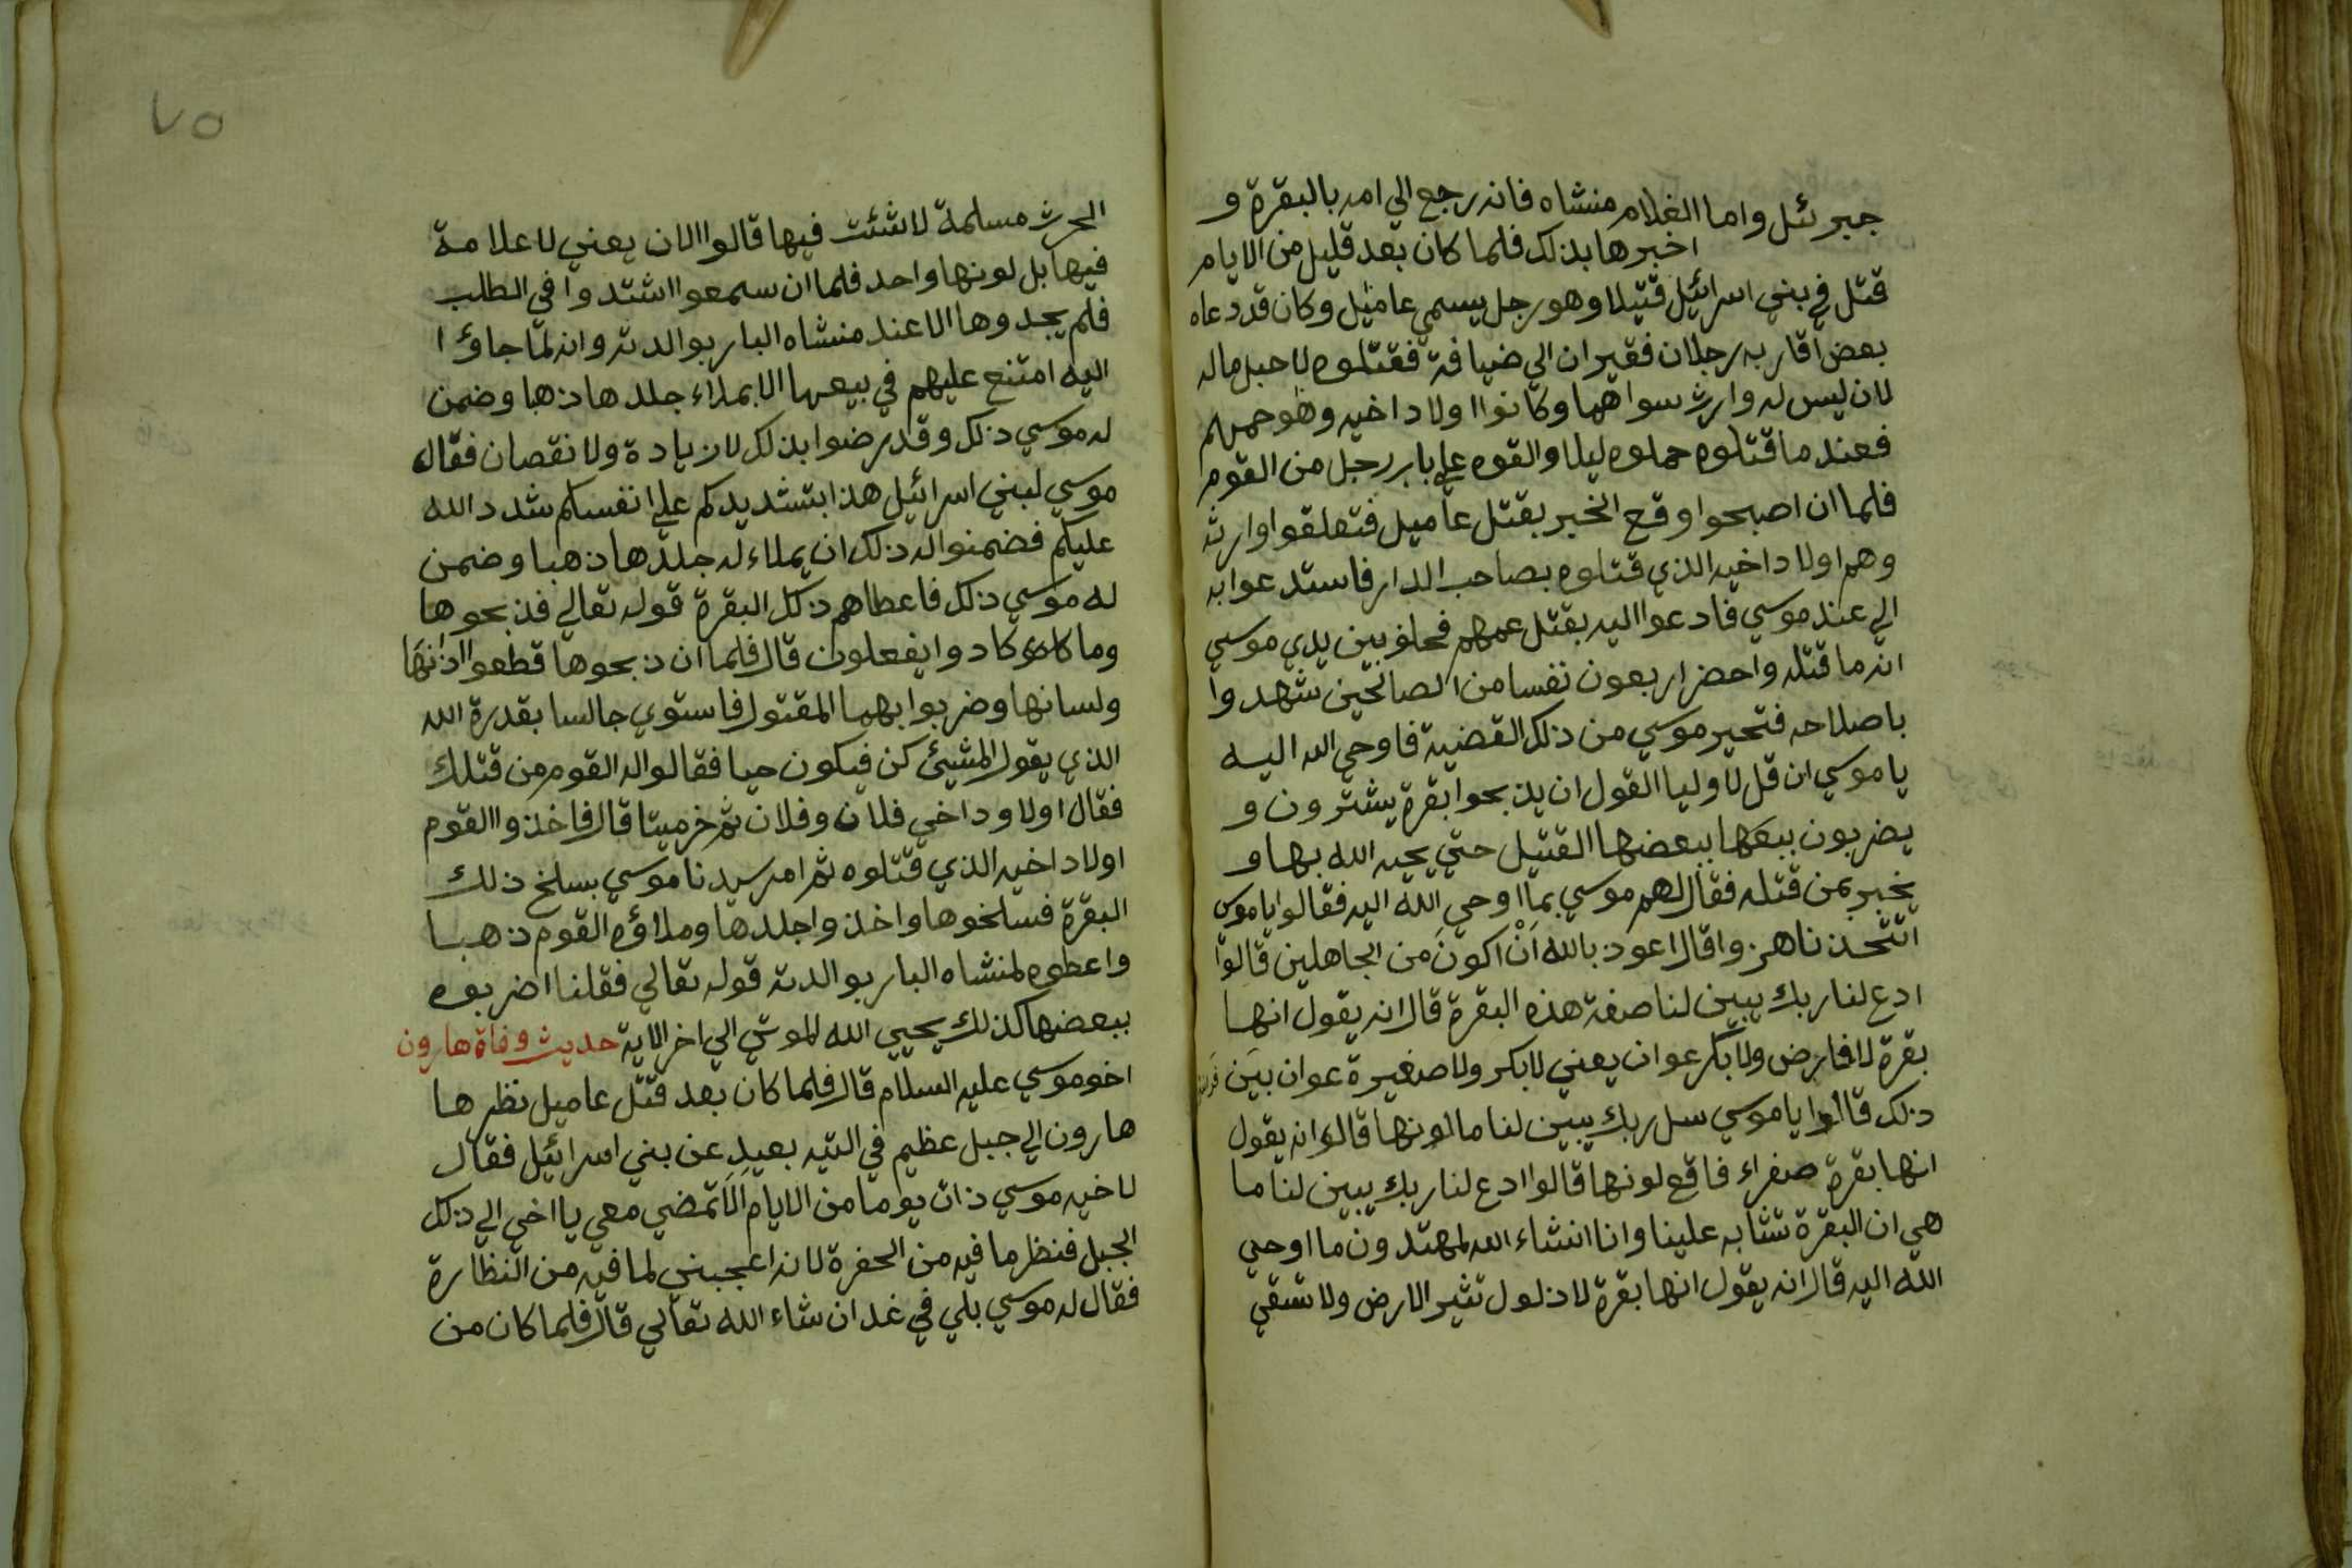 جبرئل واما الغلام منشاه فانه رجع الي امه بالبقرة و
اخبرها بذلك فلما كان بعد قليل من الايام
قتل في بني اسرائيل قتيلا وهو رجل يسمي عاميل وكان قد دعاه
بعض اقاربه رجلان فقيران الي ضيافة فقتلوه لاجل ماله
لان ليس له وارث سواهما وكانوا اولاد اخيه وهو عمهم
فعند ما قتلوه حملوه ليلا والقوه علي باب رجل من القوم
فلما ان اصبحوا وقع الخبر بقتل عاميل فتعلقوا وارثه
وهم اولاد اخيه الذي قتلوه بصاحب الدار فاستدعوا به
الي عند موسي فادعوا اليه بقتل عمهم فحلف بين يدي موسي
انه ما قتله واحضر اربعون نفسا من الصالحين شهدوا
باصلاحه فتحير موسي من ذلك القضية فاوحي الله اليه
يا موسي ان قل لاوليا القول ان يذبحوا بقرة يشترون و
يضربون ببعضها القتيل حتي يحيه الله بها و
يخبر بمن قتله فقال لهم موسي بما اوحي الله اليه فقالوا يا موسي
اتتخذنا هزوا قال اعوذ بالله اَنْ اكونَ من الجاهلين قالوا
ادع لنا ربك يبين لنا صفة هذه البقرة قال انه يقول انها
بقرة لا فارض ولا بكر عوان يعني لا بكر ولا صغيرة عوان بين
ذلك قالوا يا موسي سل ربك يبين لنا ما لونها قالوا انه يقول
انها بقرة صفراء فاقع لونها قالوا ادع لنا ربك يبين لنا ما
هي ان البقرة تشابه علينا وانا انشاء الله لمهتدون ما اوحي
الله اليه قال انه يقول انها بقرة لا ذلول تثير الارض ولا تسقي
٧٥
الحرث مسلمة لا شئت فيها قالوا الان يعني لا علامة
فيها بل لونها واحد فلما ان سمعوا اشتدوا في الطلب
فلم يجدوها الا عند منشاه البار بوالدته وانه لمّا جاؤا
اليه امتنع عليهم في بيعها الا بملاء جلدها ذهبا وضمن
له موسي ذلك وقد رضوا بذلك لا زيادة ولا نقصان فقال
موسي لبني اسرائيل هذا بتشديدكم علي انفسكم شدد الله
عليكم فضمنوا له ذلك ان يملاء له جلدها ذهبا وضمن
له موسي ذلك فاعطاهم ذلك البقرة قوله تعالي فذبحوها
وما كادوا يفعلون قال فلما ان ذبحوها قطعوا اذنها
ولسانها وضربوا بهما المقتول فاستوي جالسا بقدرة الله
الذي يقول للشيئ كن فيكون حيا فقالوا له القوم من قتلك
فقال اولاود اخي فلان وفلان ثم خر ميتا قال فاخذوا القوم
اولاد اخيه الذي قتلوه ثم امر سيدنا موسي بسلخ ذلك
البقرة فسلخوها واخذوا جلدها وملاؤه القوم ذهبا
واعطوه لمنشاه البار بوالدته قوله تعالي فقلنا اضربوه
ببعضها كذلك يحيي الله الموتي الي اخر الاية حديث وفاة هارون
اخو موسي عليه السلام قال فلما كان بعد قتل عاميل نظر ها
هارون الي جبل عظيم في التيه بعيد عن بني اسرائيل فقال
لاخيه موسي ذات يوما من الايام الا تمضي معي يا اخي الي ذلك
الجبل فننظر ما فيه من الحفرة لانه اعجبني لما فيه من النظارة
فقال له موسي بلي في غد ان شاء الله تعالي قال فلما كان من